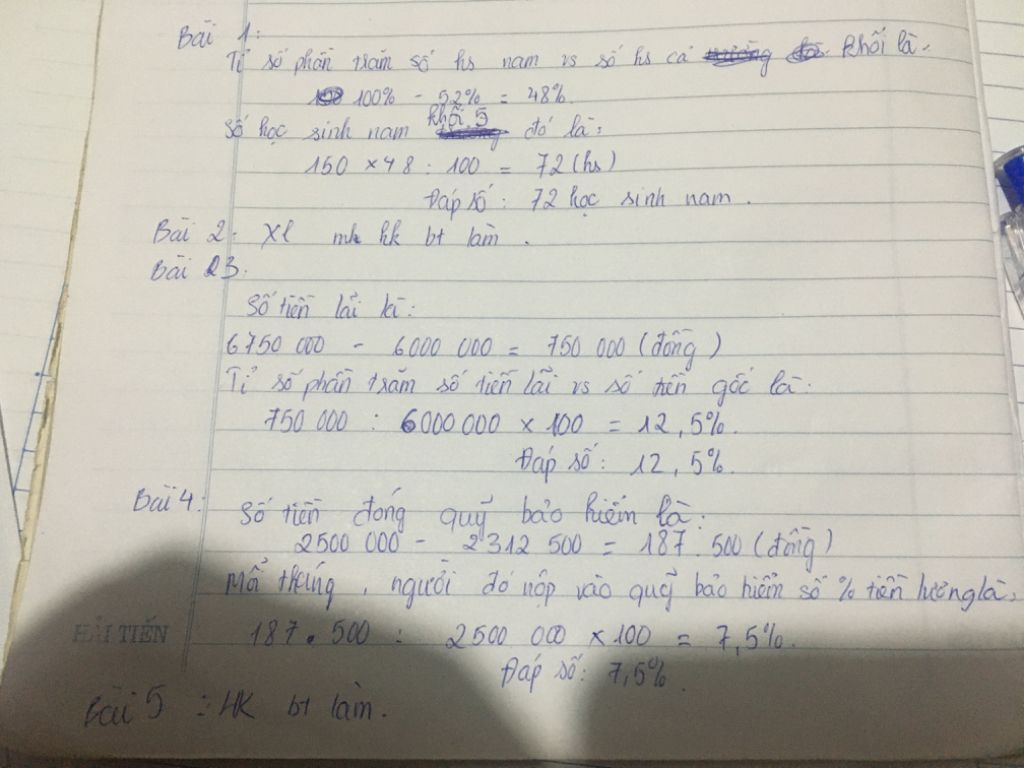 Bài 1:
Tỉ số phần trăm số hs nam vs số hs cả khối là.
100% - 52% = 48%.
Số học sinh nam khối 5 đó là:
150 × 48 : 100 = 72 (hs)
Đáp số: 72 học sinh nam.
Bài 2: Xl mk hk bt làm.
Bài 3.
Số tiền lãi là:
6750 000 - 6000 000 = 750 000 (đồng)
Tỉ số phần trăm số tiền lãi vs số tiền gốc là:
750 000 : 6000 000 × 100 = 12,5%.
Đáp số: 12,5%.
Bài 4: Số tiền đóng quỹ bảo hiểm là:
2500 000 - 2312 500 = 187.500 (đồng)
Mỗi tháng, người đó nộp vào quỹ bảo hiểm số % tiền lương là:
HẢI TIẾN
187.500 : 2500 000 × 100 = 7,5%.
Đáp số: 7,5%.
Bài 5: HK bt làm.